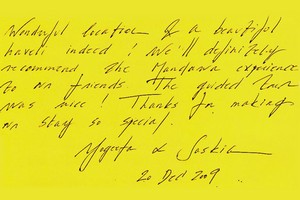 Wonderful location & a beautiful
haven indeed! We'll definitely
recommend the Mandawa experience
to our friends. The guided tour
was nice! Thanks for making
our stay so special.
& Saskia
20 Dec' 2009